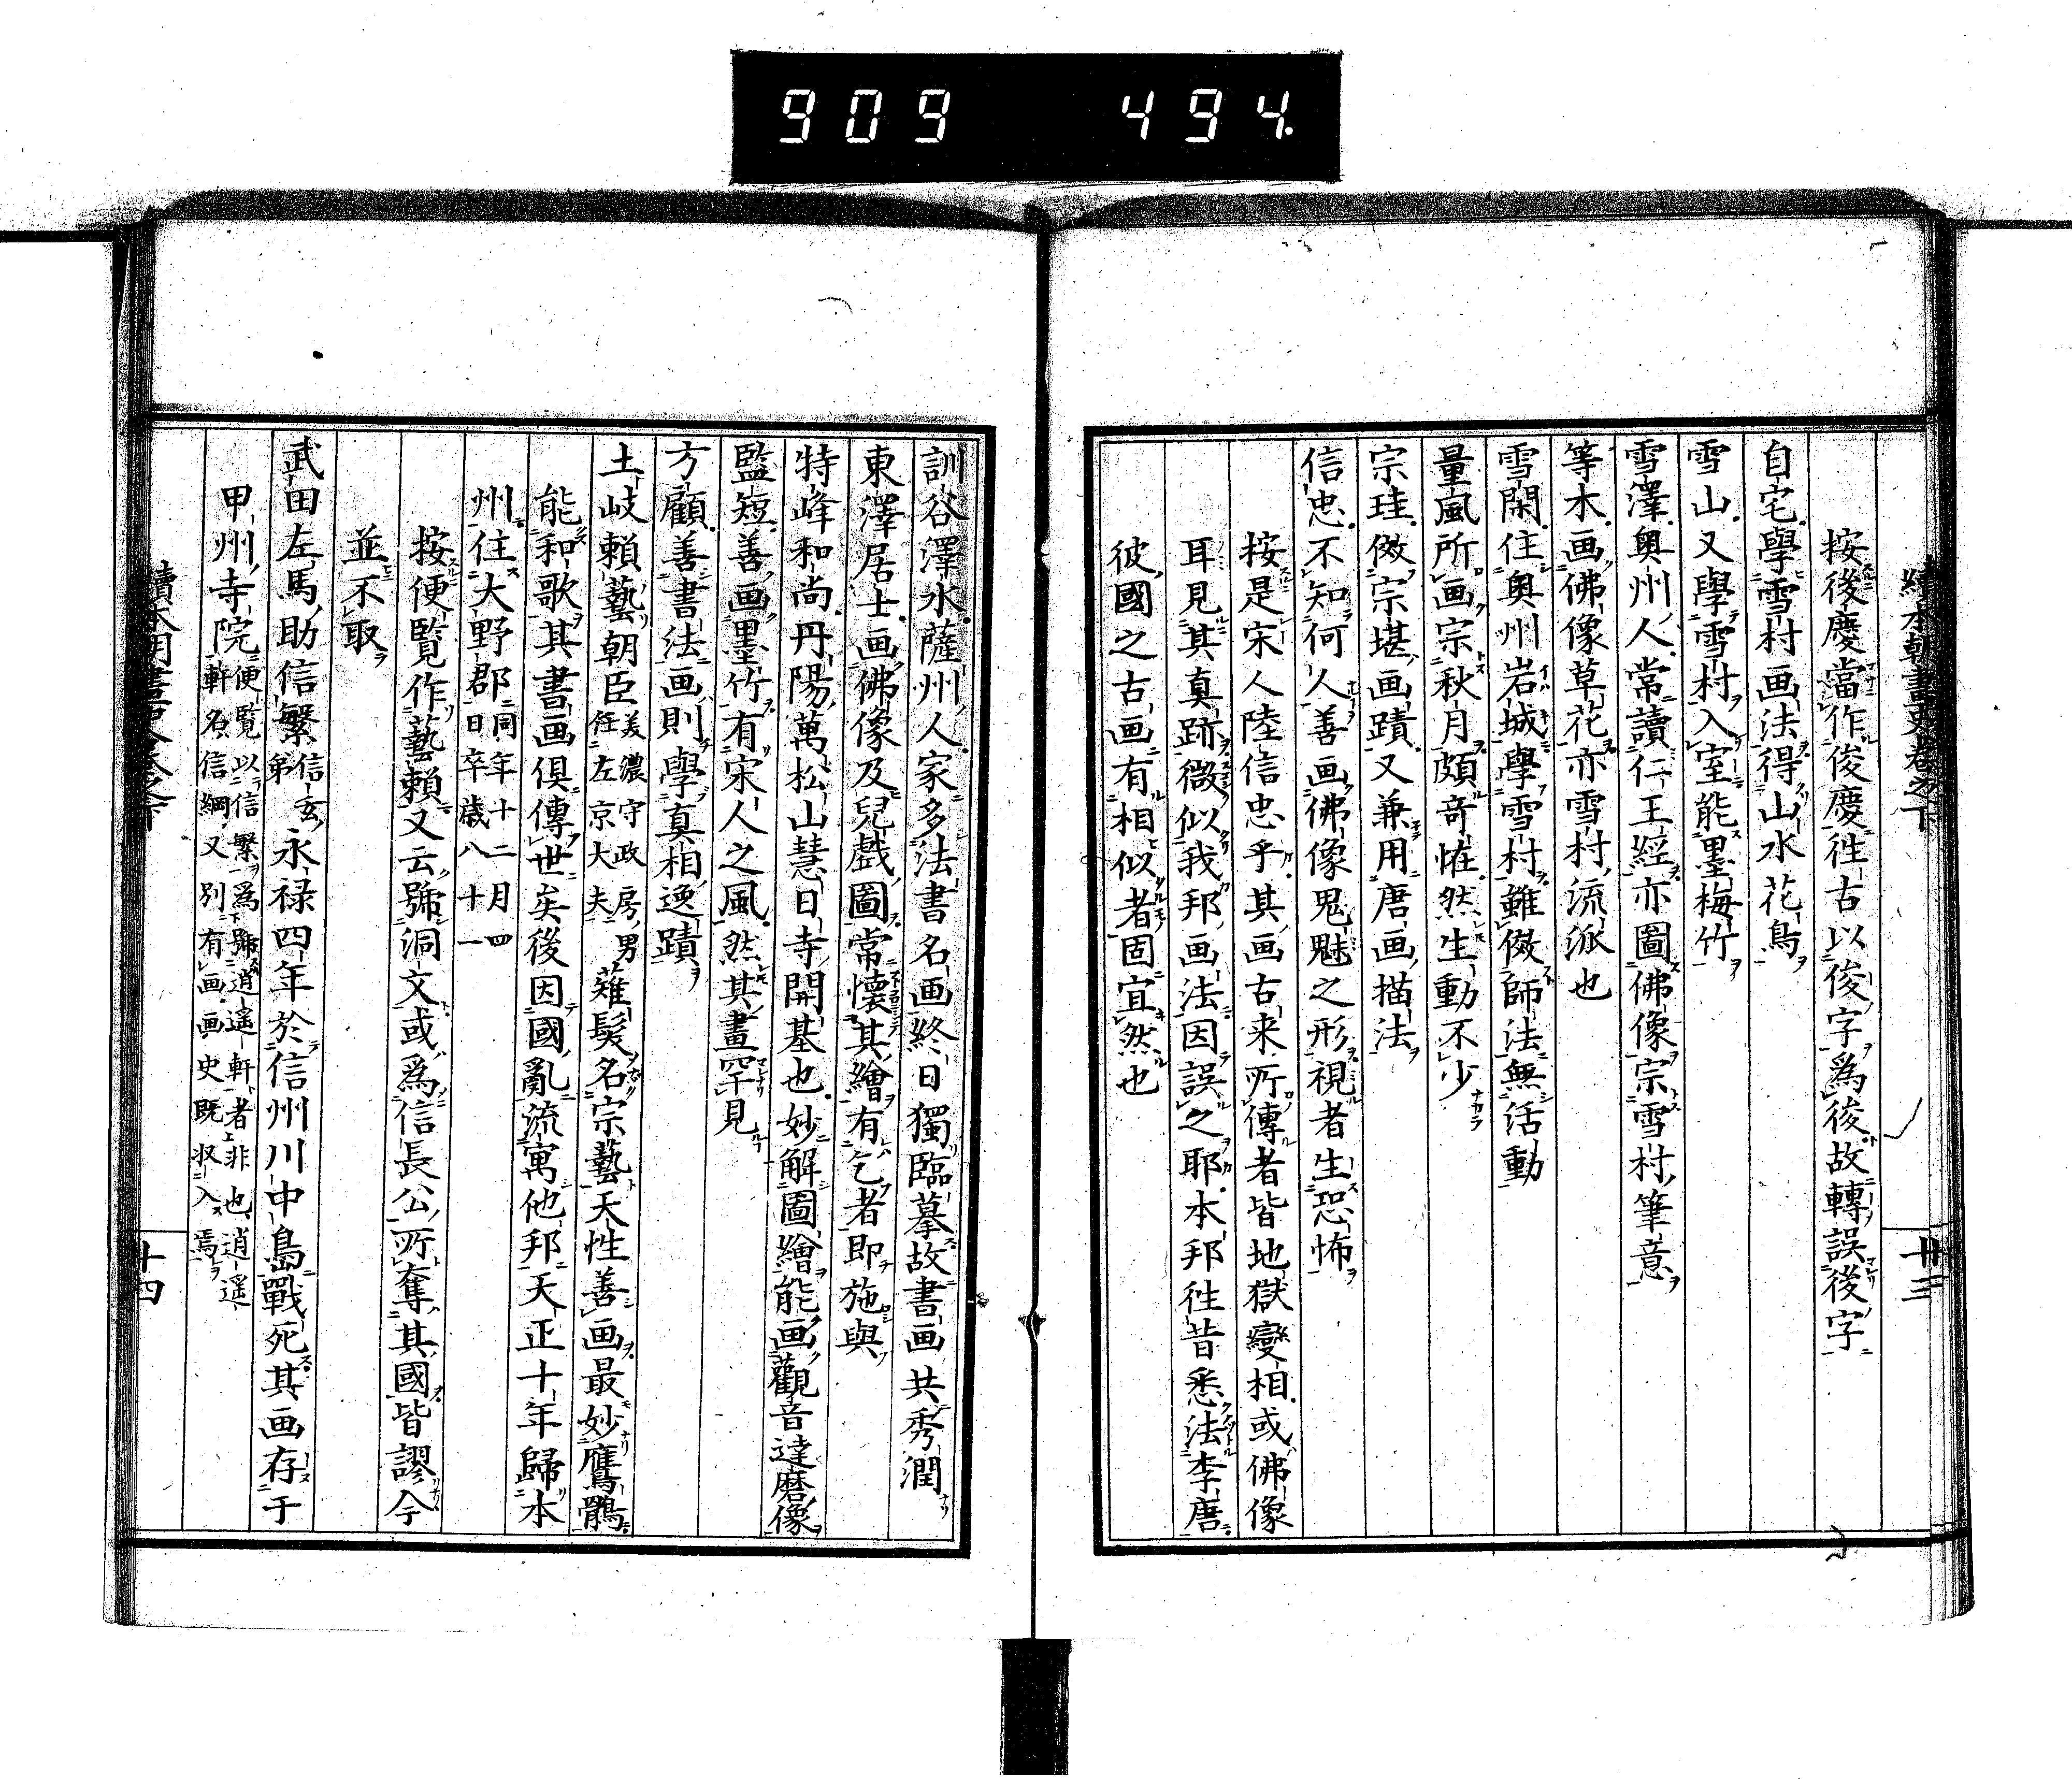 909 494.
續本朝畫史卷之下
廿三
按後慶當作俊慶徃古以俊字爲後故轉誤後字
自宅學雪村画法得山水花鳥
雪山又學雪村入室能墨梅竹
雪澤奥州人常讀仁王經亦圖佛像宗雪村筆意
等木画佛像草花亦雪村流派也
雪閑住奥州岩城學雪村雖倣師法無活動
量風所画宗秋月頗竒恠然生動不少
宗珪倣宗堪画蹟又兼用唐画描法
信忠不知何人善画佛像鬼魅之形視者生恐怖
按是宋人陸信忠乎其画古来所傳者皆地獄變相或佛像
耳見其真跡微似我邦画法因誤之耶本邦徃昔悉法李唐
彼國之古画有相似者固宜然也
訓谷澤水薩州人家多法書名画終日獨臨摹故書画共秀潤
東澤居士画佛像及兒戲圖常懷其繪有乞者即施與
特峰和尚丹陽萬松山慧日寺開基也妙解圖繪能画觀音達磨像
監短善画墨竹有宋人之風然其畫罕見
方顧善書法画則學真相逸蹟
土岐頼藝朝臣美濃守政房男任左京大夫薙髮名宗藝天性善画最妙鷹鶻
能和歌其書画倶傳世矣後因國亂流寓他邦天正十年歸本
州住大野郡同年十二月四日卒歳八十一
按便覧作藝頼又云號洞文或爲信長公所奪其國皆謬今
並不取
武田左馬助信繁信玄弟永禄四年於信州川中島戰死其画存于
甲州寺院便覧以信繁爲號逍遥軒者非也逍遥軒名信綱又別有画画史既収入焉
續本朝畫史卷之下
十四